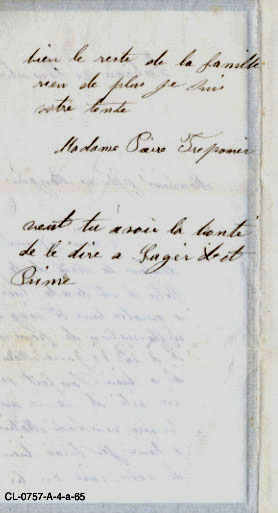 bien le reste de la famille
rien de plus je suis
votre tente
Madame Piere Trepanier
veut tu avoir la bonté
de le dire a
Prime
CL-0757-A-4-a-65